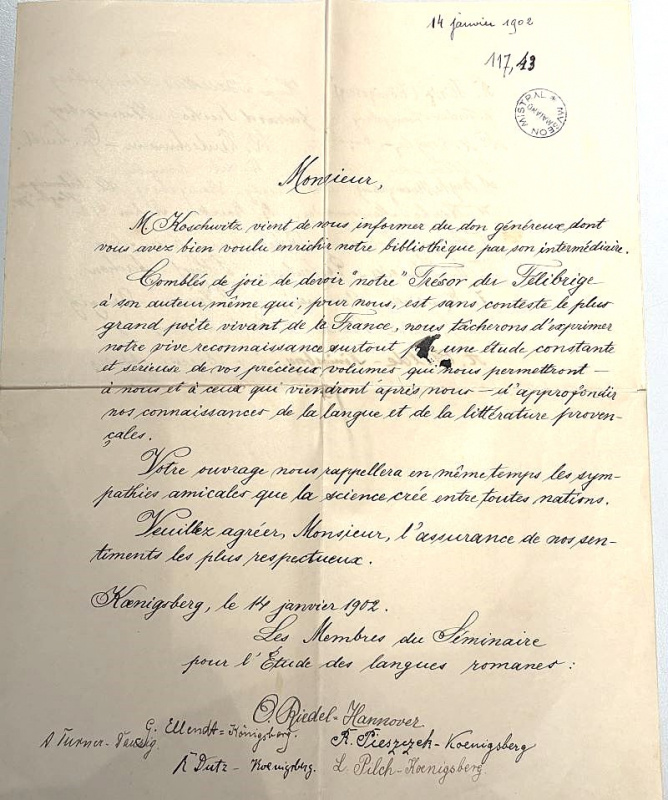 14 janvier 1902
117,43
MUSEON MISTRAL
Monsieur,
M. Koschwitz vient de nous informer du don généreux dont
vous avez bien voulu enrichir notre bibliothèque par son intermédiaire.
Comblés de joie de devoir "notre" Trésor du Félibrige
à son auteur même qui, pour nous, est sans conteste le plus
grand poète vivant de la France, nous tâcherons d'exprimer
notre vive reconnaissance surtout par une étude constante
et sérieuse de vos précieux volumes qui nous permettront —
à nous et à ceux qui viendront après nous — d'approfondir
nos connaissances de la langue et de la littérature proven-
çales.
Votre ouvrage nous rappellera en même temps les sym-
pathies amicales que la science crée entre toutes nations.
Veuillez agréer, Monsieur, l'assurance de nos sen-
timents les plus respectueux.
Kœnigsberg, le 14 janvier 1902.
Les Membres du Séminaire
pour l'Etude des langues romanes:
O. Riedel-Hannover
G. Ellendt-Königsberg.
A Turner-Danzig.
K. Pieszczek-Koenigsberg
A Dutz-Koenigsberg.
L. Pilch-Kœnigsberg.